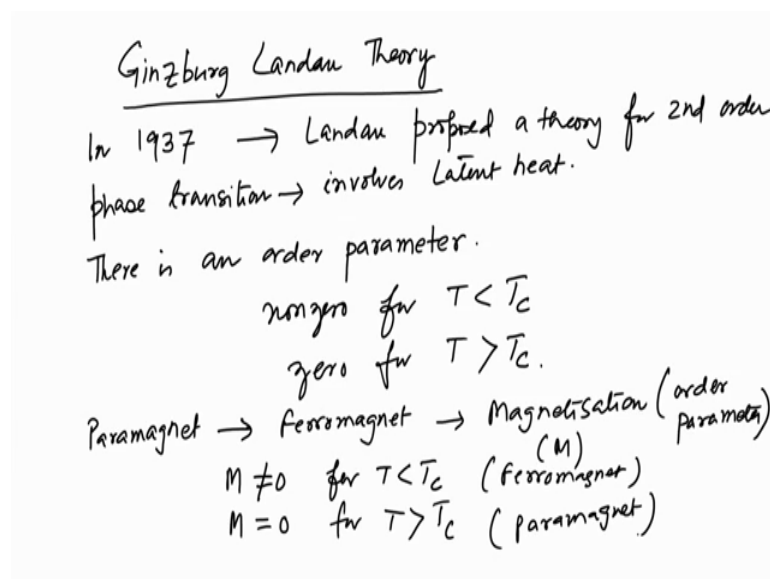 Ginzburg Landau Theory
In 1937 → Landau proposed a theory for 2nd order
phase transition → involves Latent heat.
There is an order parameter.
nonzero for T < Tc
zero for T > Tc.
Paramagnet → Ferromagnet → Magnetisation (order parameter)
(M)
M ≠ 0 for T < Tc (Ferromagnet)
M = 0 for T > Tc (paramagnet)